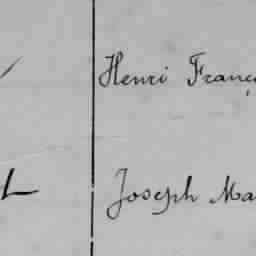 Henri Franç
L Joseph Ma